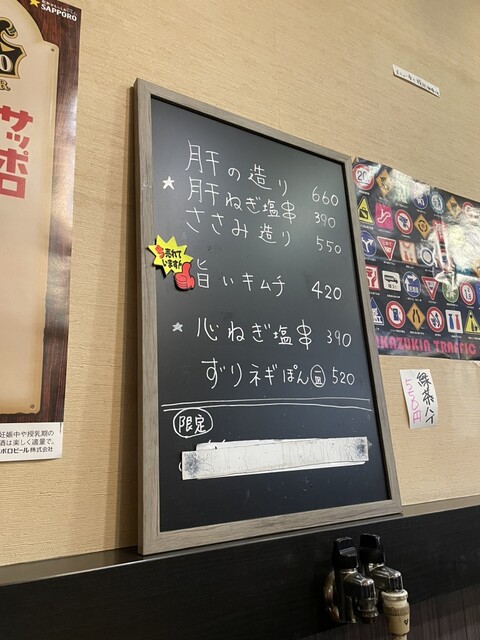 SAPPORO
サッポロ
妊娠中や授乳期の
酒は楽しく適量で。
ポロビール株式会社
肝の造り 660
★ 肝ねぎ塩串 390
ささみ造り 550
売れて
います!!
旨いキムチ 420
★ 心ねぎ塩串 390
ずりネギぽん 皿 520
限定
KAZUKIN TRAFFIC
緑茶ハイ
550円